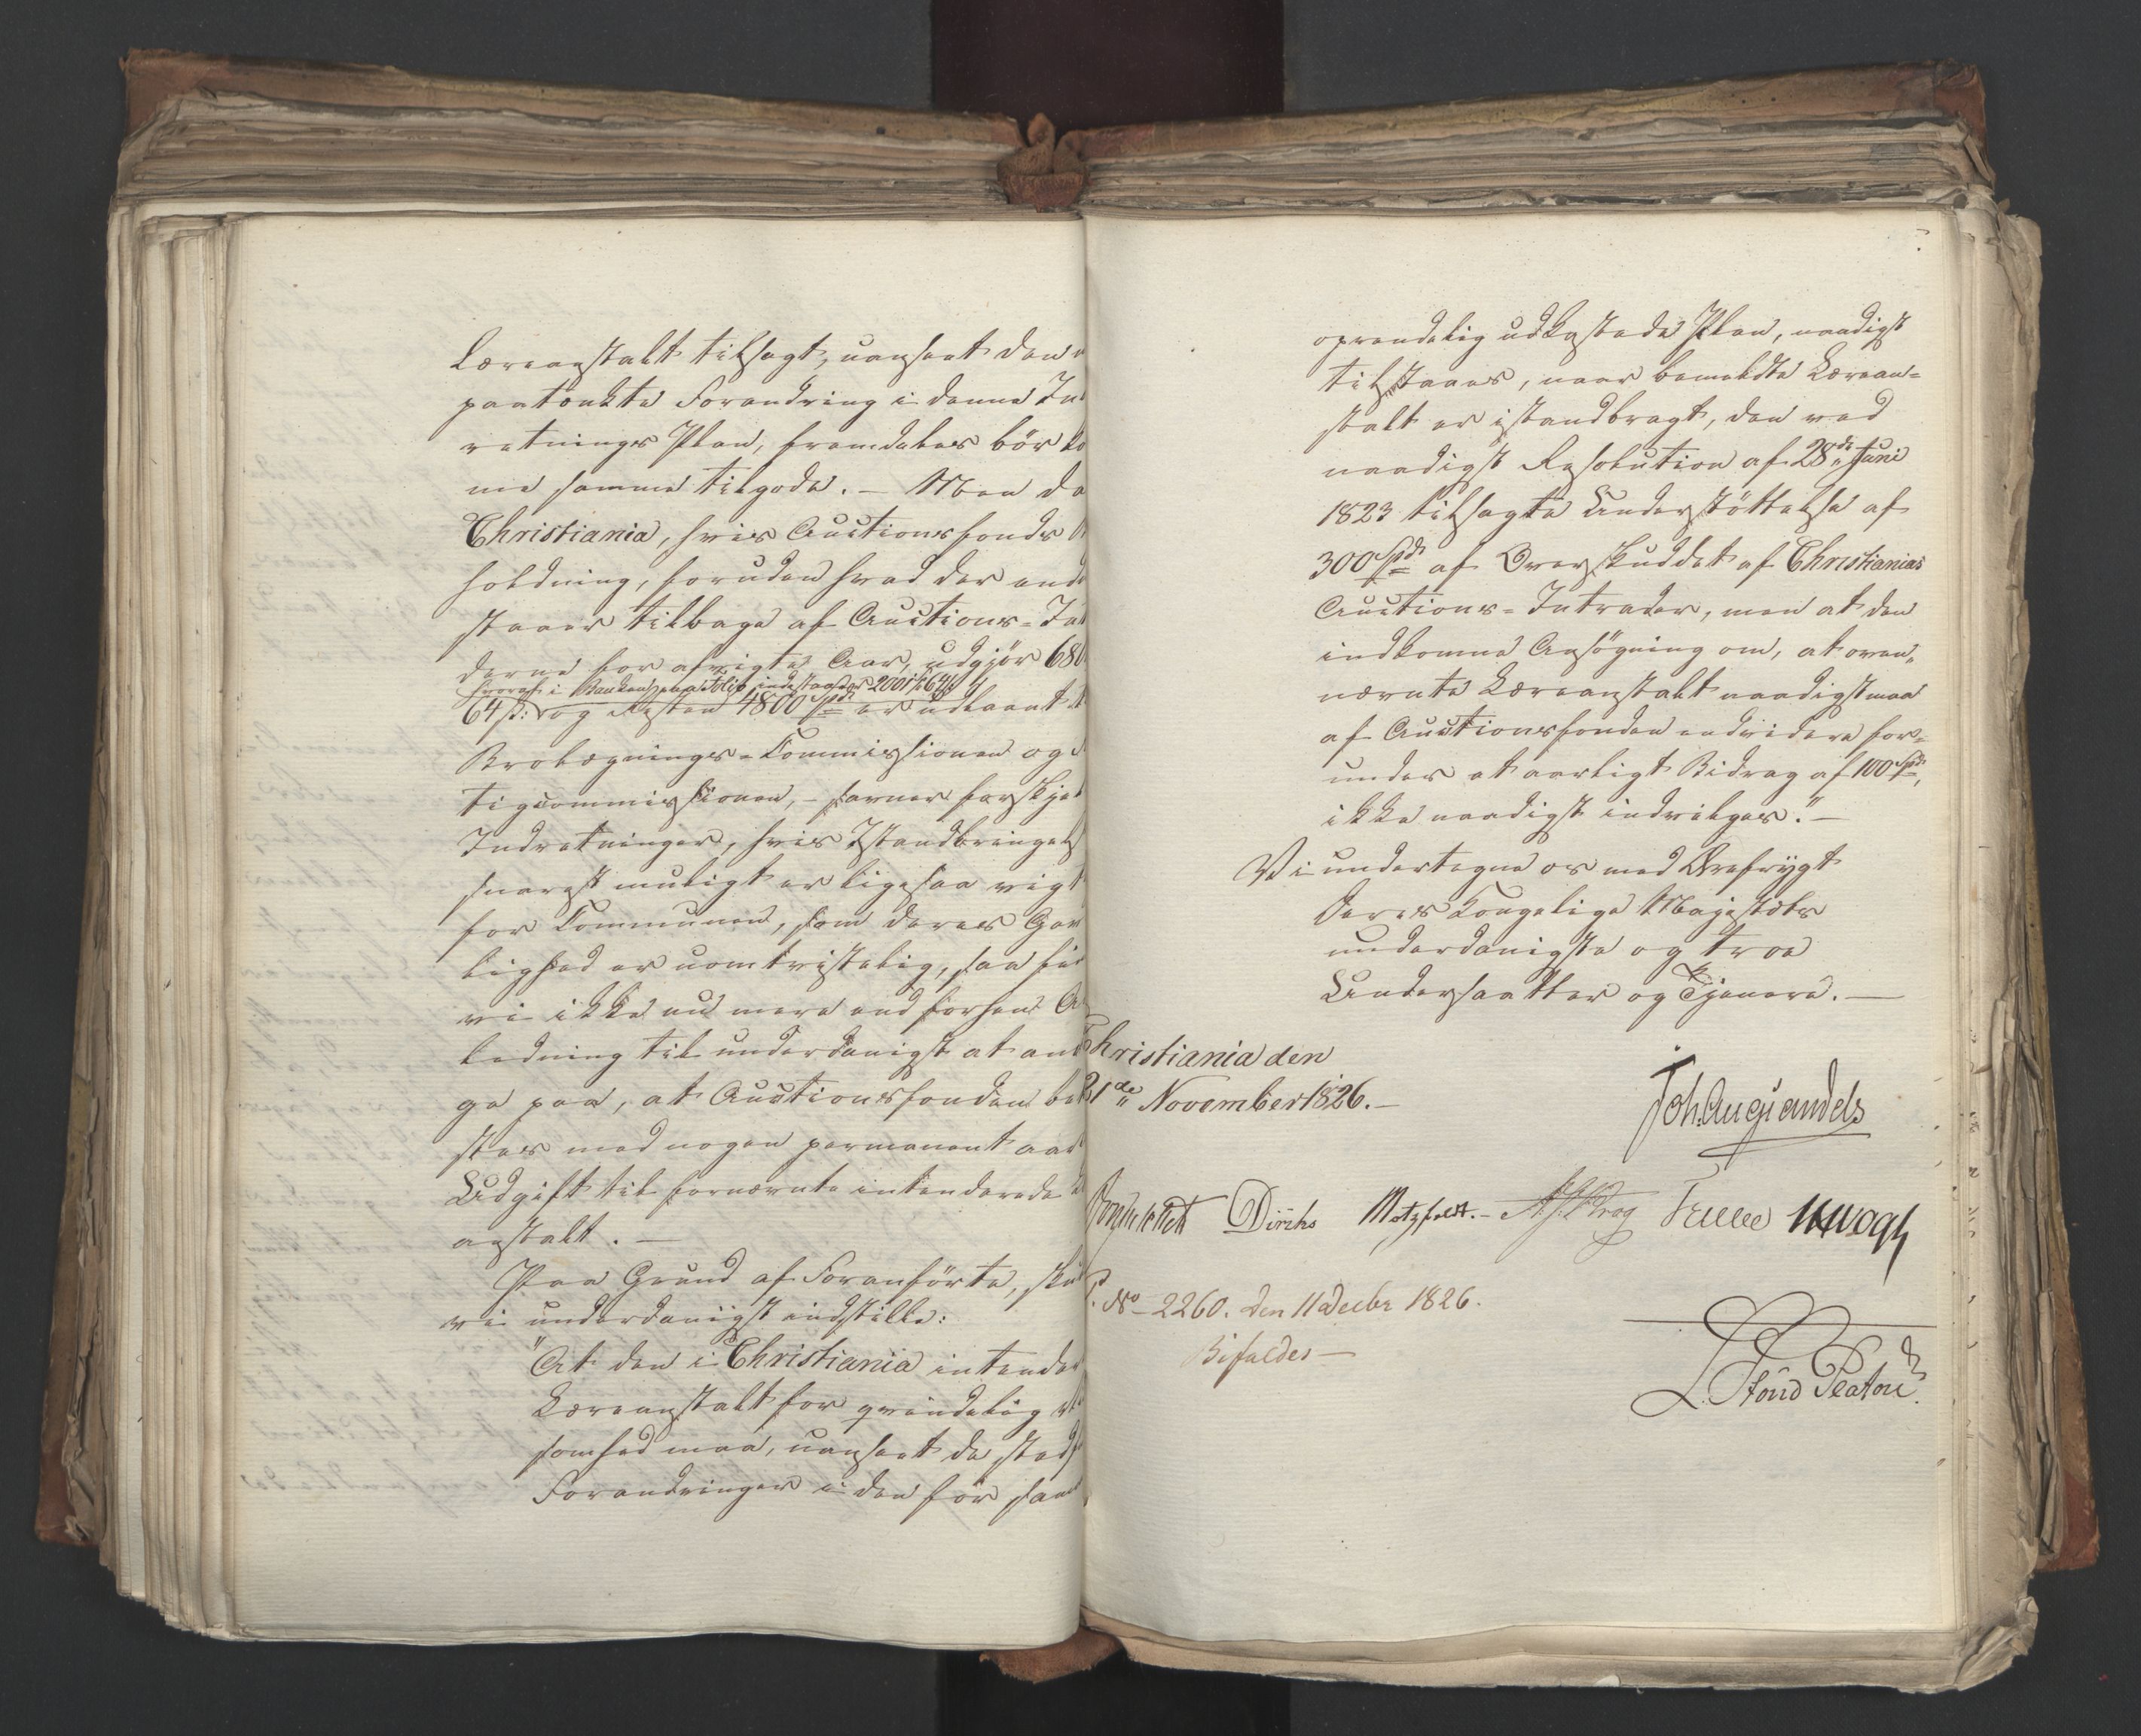 Læreanstalt tilsagt, uanseet den
paatænkte Forandring i denne Ind
retnings Plan, fremdeles bör ko
me samme tilgode. – Men da
Christiania, hvis Auctionsfonds
holdning, foruden hvad der end
staaer tilbage af Auctions-Int
derne for afvigte Aar, udgjör 680
hvoraf i Banken indestaaer 2001 64
64 s: og Resten 4800 Spd er udlaant
Brolægnings-Commissionen og
tigcommissionen, – savner forskjel
Indretninger, hvis Istandbringels
snarest muligt er ligesaa vigt
for Communen, som deres Gav
lighed er uomtvistelig, saa fin
vi ikke nu mere end forhen A
ledning til underdanigst at and
ge paa, at Auctionsfonden be
stes med nogen permanent aar
Udgift til fornævnte intenderede
anstalt. –
Paa Grund af Foranförte, skul
vi underdanigst indstille:
"At den i Christiania intender
Læreanstalt for qvindelig
somhed maa, uanseet de sted
Forandringer i den för sam
oprendelig udkastede Plan, naadigst
tilstaaes, naar bemeldte Lærean-
stalt er istandbragt, den ved
naadigst Resolution af 28de Juni
1823 tilsagte Understöttelse af
300 Spd af Overskuddet af Christianias
Auctions-Intrader, men at den
indkomne Ansögning om, at oven-
nævnte Læreanstalt naadigst maa
af Auctionsfonden endvidere for-
undes et aarligt Bidrag af 100 Spd,
ikke naadigst indvilges." –
Vi undertegne os med Ærefrygt
Deres Kongelige Majestæts
underdanigste og troe
Undersaatter og Tjenere. –
Christiania den
21de November 1826. –
Joh. Aug. Sandels
Diriks Motzfeldt. – Krog Treschow
P. No 2260. den 11 Decbr 1826.
Bifaldes –